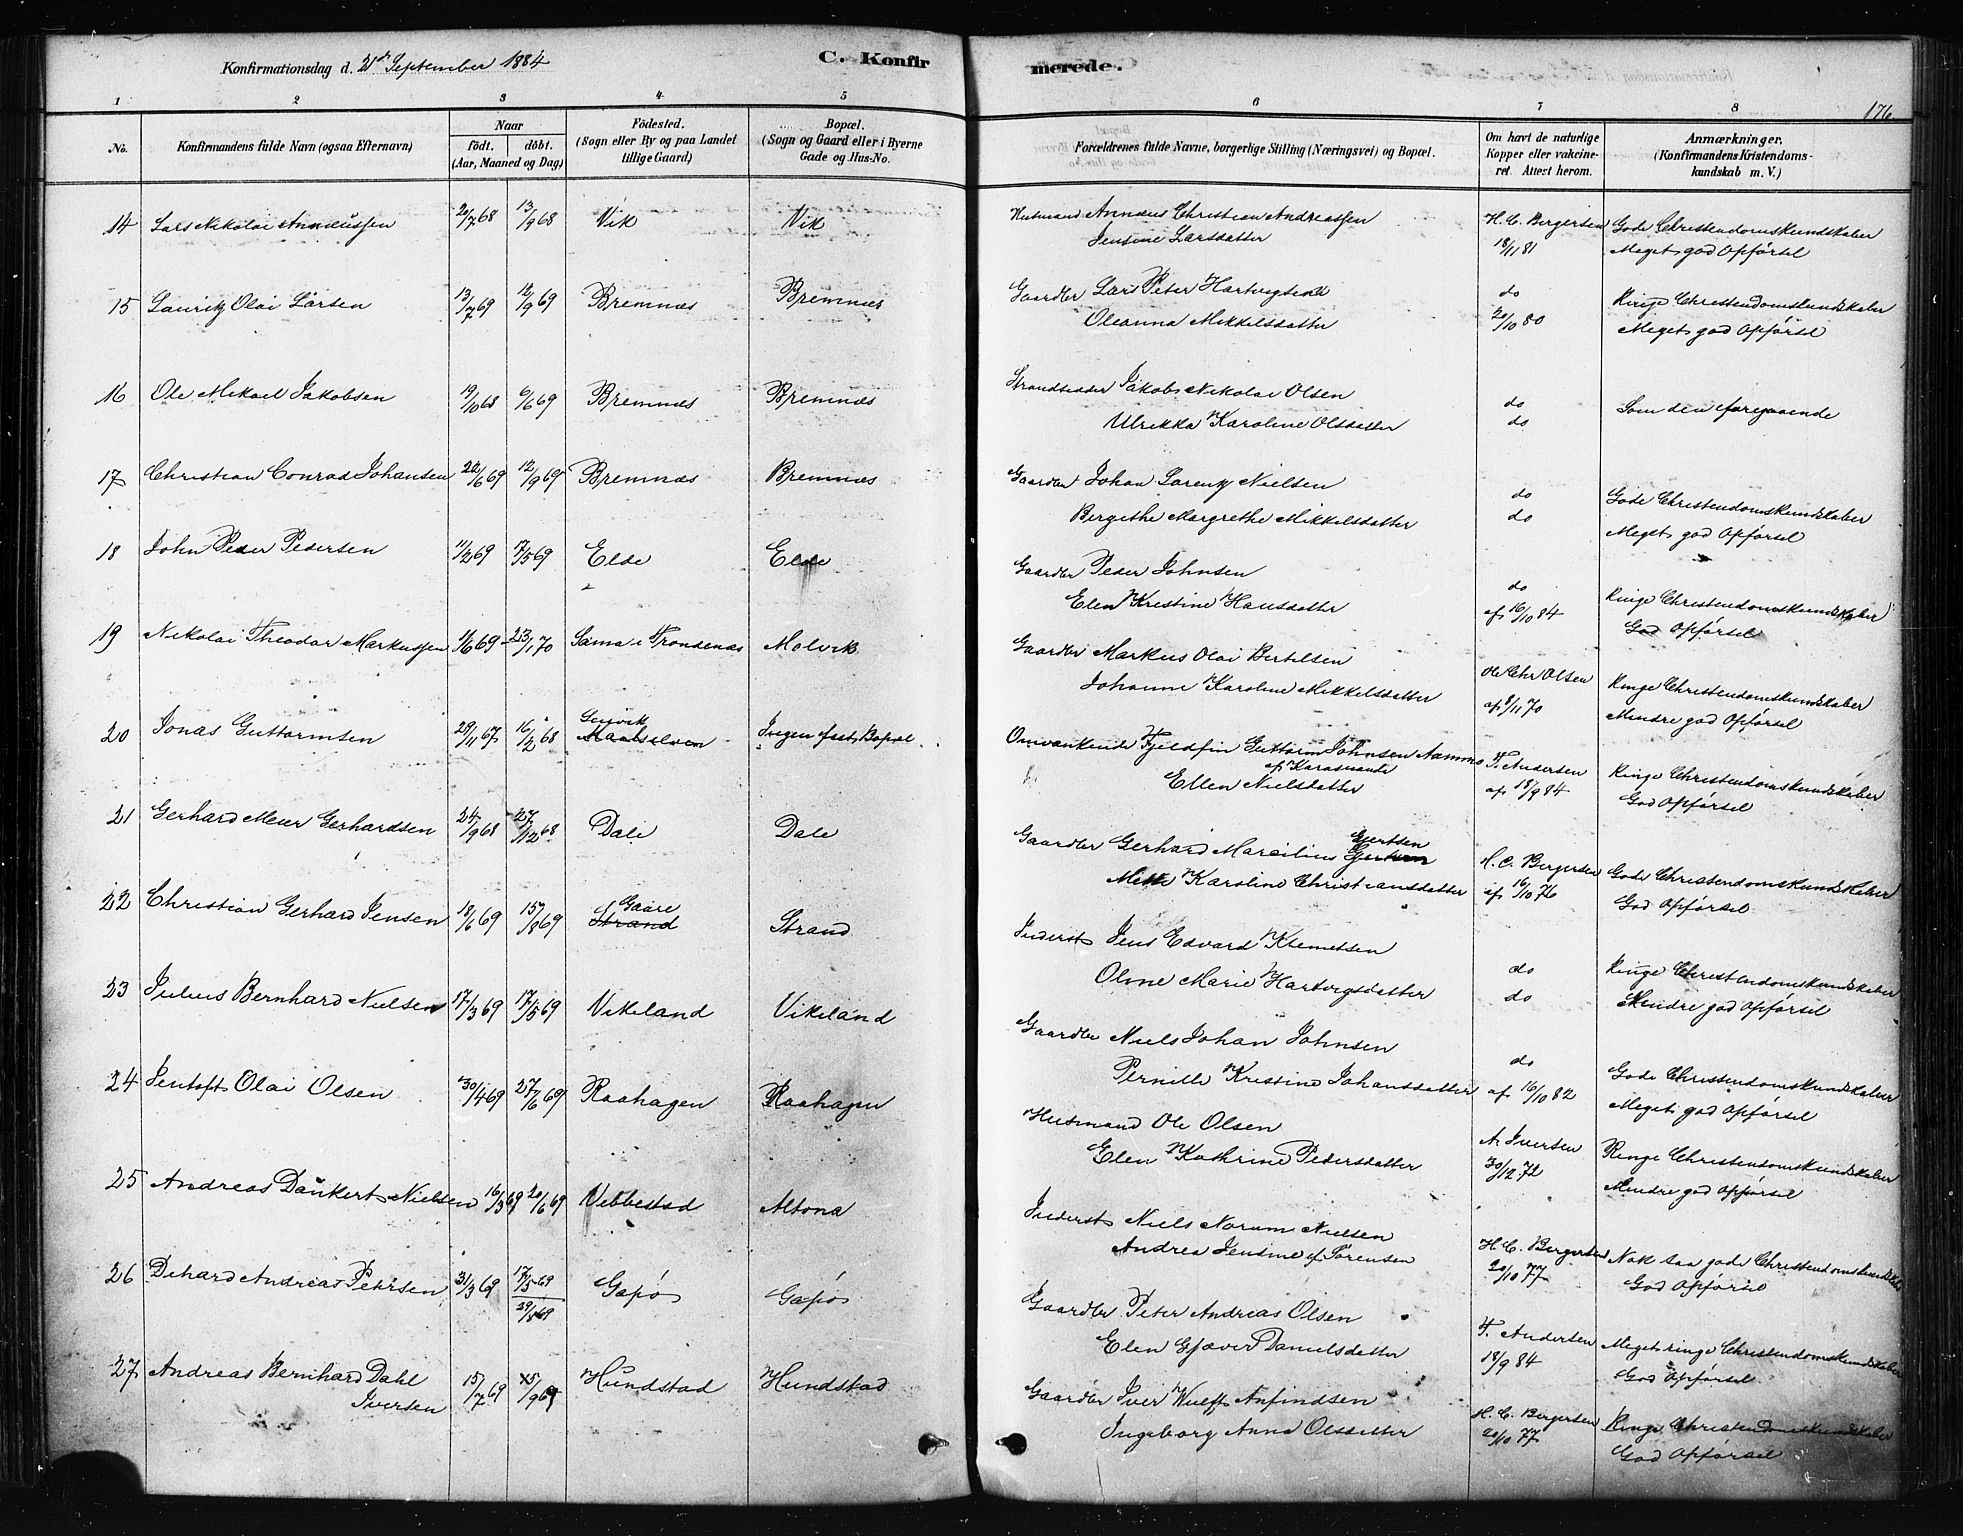 Konfirmationsdag d. 21de September 1884
C. Konfirmerede.
176
1 2 3 4 5 6 7 8
No.
Konfirmandens fulde Navn (ogsaa Efternavn)
Naar
født. døbt.
(Aar, Maaned og Dag)
Födested.
(Sogn eller By og paa Landet
tillige Gaard)
Bopæl.
(Sogn og Gaard eller i Byerne
Gade og Hus-No.
Forældrenes fulde Navne, borgerlige Stilling (Næringsvei) og Bopæl.
Om havt de naturlige
Kopper eller vakcine-
ret. Attest herom.
Anmærkninger,
(Konfirmandens Kristendoms-
kundskab m. V.)
14 Lars Nikolai Annæussen 20/7 68 13/9 68 Vik Vik Husmand Annæus Christian Andreassen H. C. Bergersen Gode Christendomskundskaber
Jensine Larsdatter 18/11 81 Meget god Opførsel
15 Lauritz Olai Larsen 13/7 69 12/9 69 Bremnæs Bremnæs Gaardbr Lars Peter Hartvigsen do Ringe Christendomskundskaber
Oleanna Mikkelsdatter 20/10 80 Meget god Opførsel
16 Ole Mikael Jakobsen 19/10 68 6/6 69 Bremnæs Bremnæs Strandsidder Jakob Nikolai Olsen do Som den foregaaende
Ulrikka Karoline Olsdatter do
17 Christian Conrad Johansen 22/6 69 12/9 69 Bremnæs Bremnæs Gaardbr Johan Lorentz Nielsen do Gode Christendomskundskaber
Bergithe Margrethe Mikkelsdatter do Meget god Opførsel
18 John Peder Pedersen 11/2 69 17/5 69 Elde Elde Gaardbr Peder Johnsen do Ringe Christendomskundskaber
Elen Kristine Hansdatter af 16/10 84 God Opførsel
19 Nikolai Theodor Markussen 1/6 69 23/1 70 Sama i Trondenæs Molvik Gaardbr Markus Olai Bertelsen Ole Chr Olsen Ringe Christendomskundskaber
Johanne Karoline Mikkelsdatter af 9/11 70 Mindre god Opførsel
20 Jonas Guttormsen 29/11 67 16/2 68 Maalselven Ingen fast Bopæl Omvankende Fjeldfin Guttorm Johnsen F. Andersen Ringe Christendomskundskaber
Ellen Nielsdatter af 18/9 84 God Opførsel
21 Gerhard Meier Gerhardsen 24/9 68 27/12 68 Dale Dale Gaardbr Gerhard Marcilius Ejertsen H. C. Bergersen Gode Christendomskundskaber
Mette Karoline Christiansdatter af 16/10 76 God Opførsel
22 Christian Gerhard Jensen 18/6 69 15/8 69 Gaare Strand Strand Inderst Jens Edvard Klemetsen do Ringe Christendomskundskaber
Oline Marie Hartvigsdatter do Mindre god Opførsel
23 Julius Bernhard Nielsen 17/3 69 17/5 69 Vikeland Vikeland Gaardbr Niels Johan Johnsen do Gode Christendomskundskaber
Pernille Kristine Johansdatter af 16/10 82 Meget god Opførsel
24 Jentoft Olai Olsen 30/4 69 27/6 69 Raahagen Raahagen Husmand Ole Olsen A. Iversen Ringe Christendomskundskaber
Elen Kathrine Pedersdatter 30/12 72 Mindre god Opførsel
25 Andreas Dankert Nielsen 16/3 69 20/6 69 Vebbestad Altona Inderst Niels Norum Nielsen H. C. Bergersen Nok saa gode Christendomskundskaber
Andrea Jensine f. Sörensen 20/10 77 God Opførsel
26 Dehard Andreas Petersen 31/3 69 17/5 69 29/8 69 Gapø Gapø Gaardbr Peter Andreas Olsen F. Andersen Meget ringe Christendomskundskaber
Elen Gjæver Danielsdatter 18/9 84 God Opførsel
27 Andreas Bernhard Dahl Iversen 15/7 69 15/9 69 Hundstad Hundstad Gaardbr Iver Wulff Anfindsen H. C. Bergersen Ringe Christendomskundskaber
Ingeborg Anna Olsdatter 20/10 77 God Opførsel